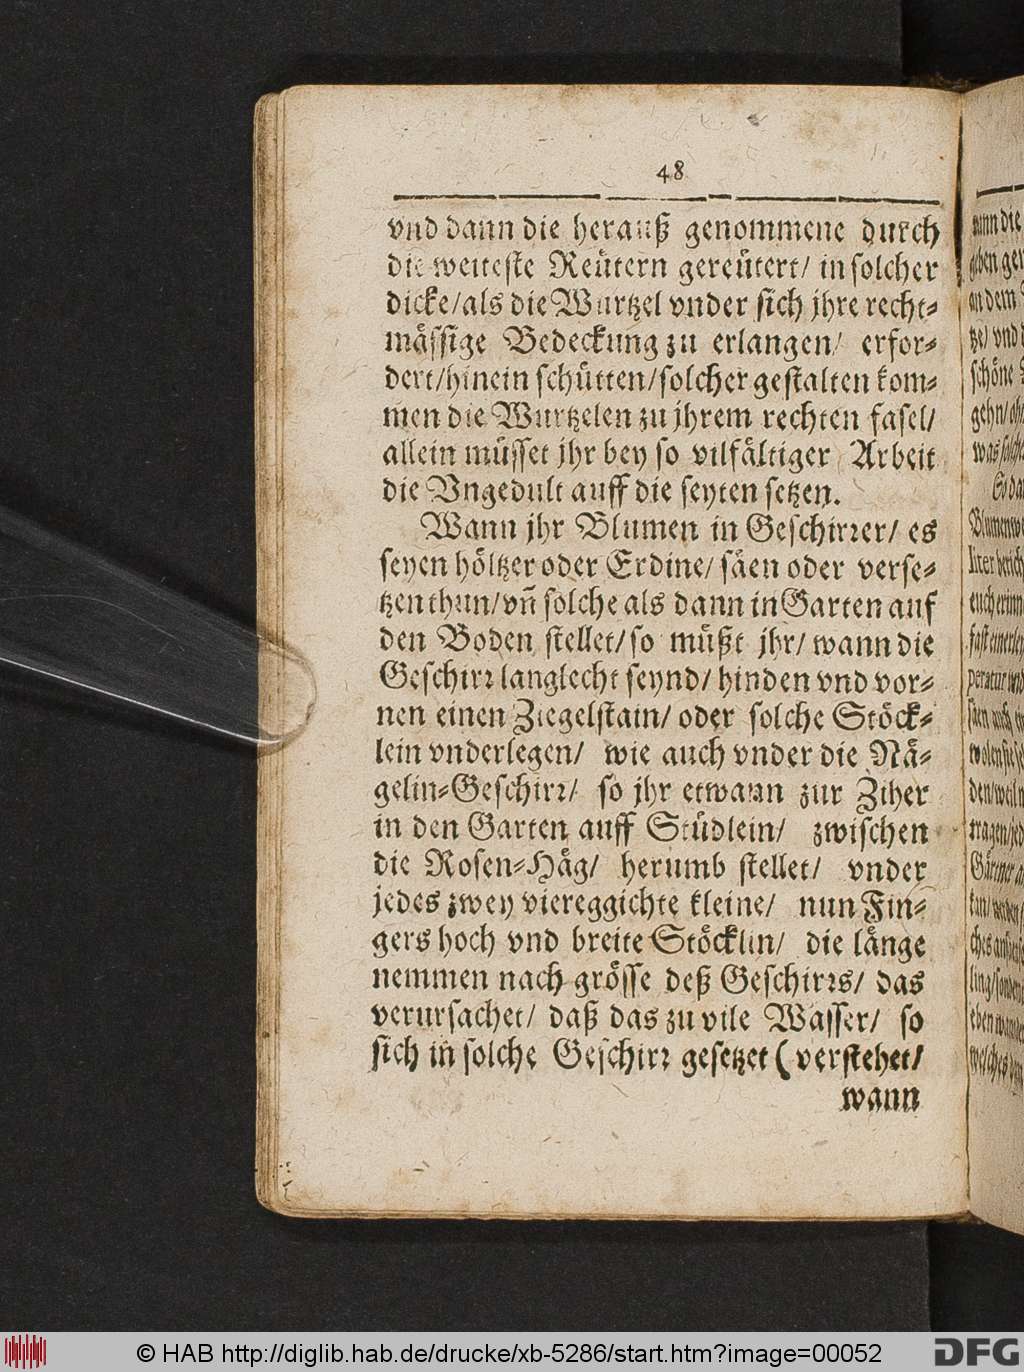 48
vnd dann die herauß genommene durch
die weiteste Reütern gereütert/ in solcher
dicke/als die Wurtzel vnder sich jhre recht-
mässige Bedeckung zu erlangen/ erfor-
dert/hinein schütten/solcher gestalten kom-
men die Wurtzelen zu jhrem rechten fasel/
allein müsset jhr bey so vilfältiger Arbeit
die Vngedult auff die seyten setzen.
Wann jhr Blumen in Geschirrer/ es
seyen höltzer oder Erdine/ säen oder verse-
tzen thun/vñ solche als dann in Garten auf
den Boden stellet/so müßt jhr/ wann die
Geschirr langlecht seynd/ hinden vnd vor-
nen einen Ziegelstain/ oder solche Stöck-
lein vnderlegen/ wie auch vnder die Nä-
gelin-Geschirr/ so jhr etwann zur Ziher
in den Garten auff Stüdlein/ zwischen
die Rosen-Häg/ herumb stellet/ vnder
jedes zwey viereggichte kleine/ nun Fin-
gers hoch vnd breite Stöcklin/ die länge
nemmen nach grösse deß Geschirrs/ das
verursachet/ daß das zu vile Wasser/ so
sich in solche Geschirr gesetzet (verstehet/
wann
© HAB http://diglib.hab.de/drucke/xb-5286/start.htm?image=00052
DFG